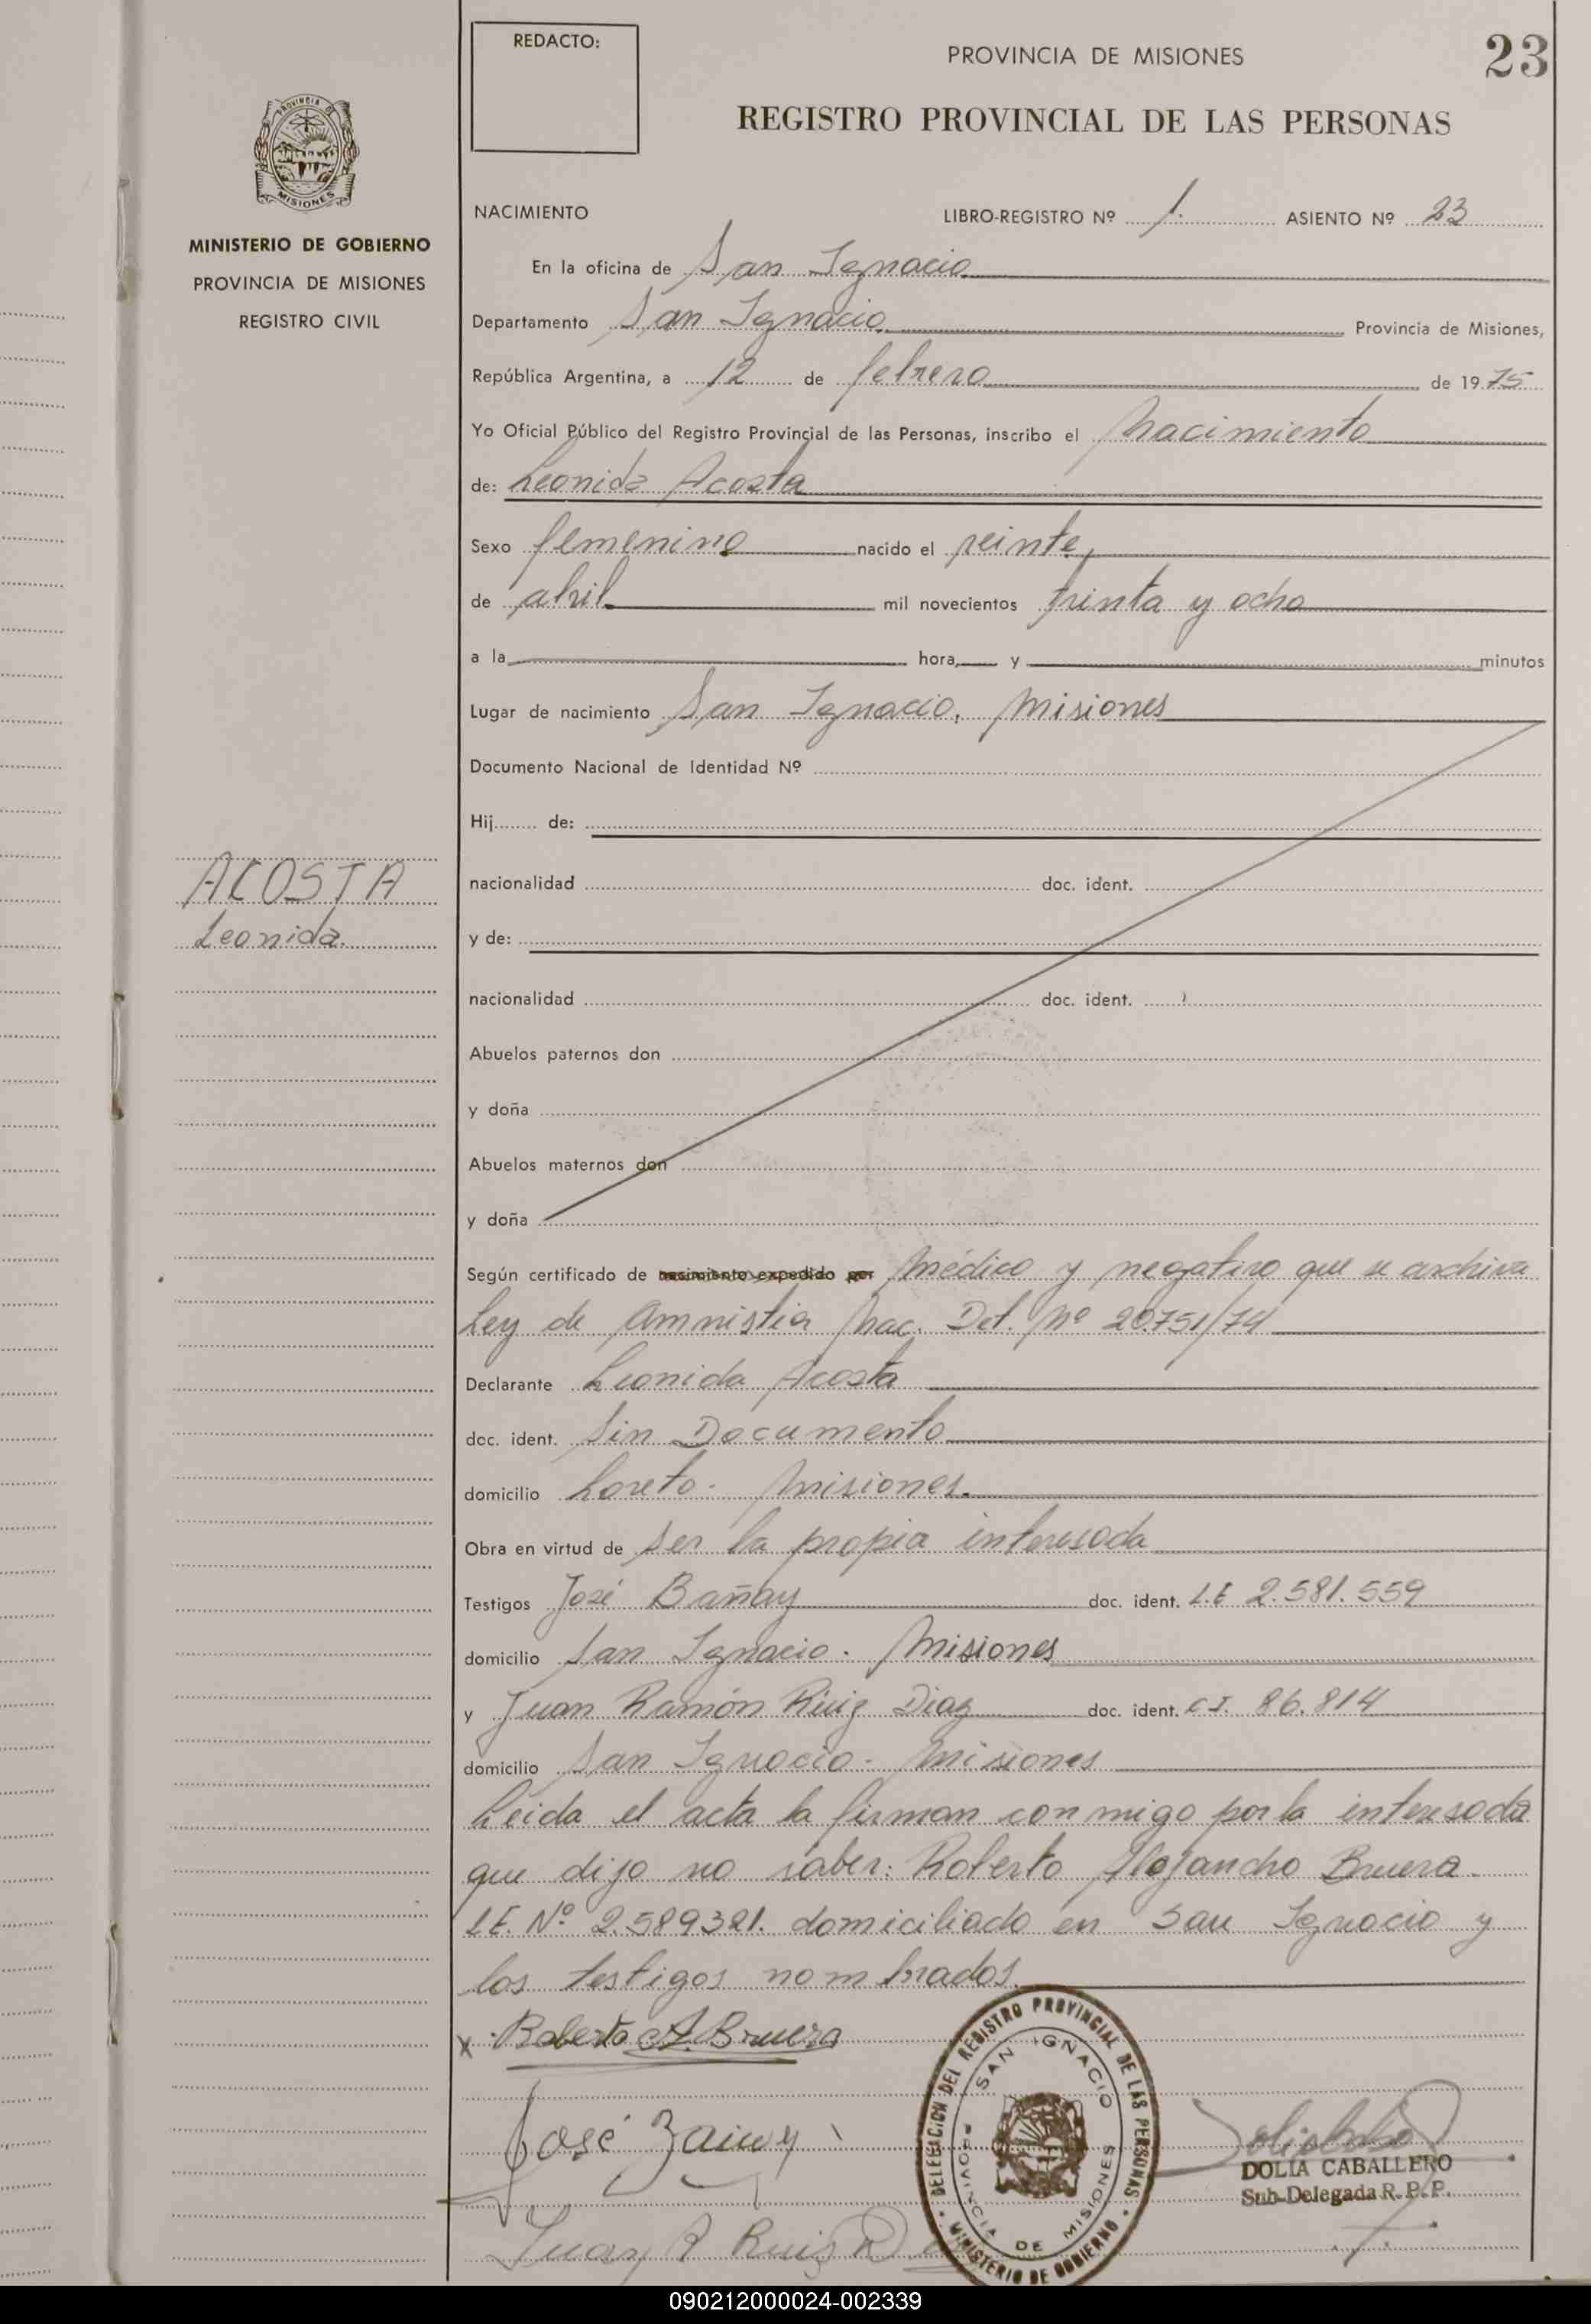 REDACTO:
PROVINCIA DE MISIONES
23
REGISTRO PROVINCIAL DE LAS PERSONAS
PROVINCIA DE
MISIONES
MINISTERIO DE GOBIERNO
PROVINCIA DE MISIONES
REGISTRO CIVIL
NACIMIENTO LIBRO-REGISTRO Nº 1. ASIENTO Nº 23
En la oficina de San Ignacio
Departamento San Ignacio Provincia de Misiones,
República Argentina, a 12 de febrero de 1975
Yo Oficial Público del Registro Provincial de las Personas, inscribo el Nacimiento
de: Leonida Acosta
Sexo femenino nacido el veinte,
de abril mil novecientos treinta y ocho
a la hora, y minutos
Lugar de nacimiento San Ignacio, Misiones
Documento Nacional de Identidad Nº
Hij de:
nacionalidad doc. ident.
ACOSTA
Leonida.
y de:
nacionalidad doc. ident.
Abuelos paternos don
y doña
Abuelos maternos don
y doña
Según certificado de nacimiento expedido por Médico y negativo que se archiva
Ley de Amnistia Nac. Dct. Nº 20.751/74
Declarante Leonida Acosta
doc. ident. Sin Documento
domicilio Loreto - Misiones.
Obra en virtud de ser la propia interesada
Testigos José Bañay doc. ident. L.E 2.581.559
domicilio San Ignacio - Misiones
y Juan Ramón Ruiz Diaz doc. ident. C.I. 86.814
domicilio San Ignacio - Misiones
Leida el acta la firman con migo por la interesada
que dijo no saber: Roberto Alejandro Bruera
L.E. Nº 2.589321. domiciliado en San Ignacio y
los testigos nombrados.
x Roberto A. Bruera
José
Juan R Ruiz D
DELEGACION DEL REGISTRO PROVINCIAL DE LAS PERSONAS
SAN IGNACIO
PROVINCIA DE MISIONES
MINISTERIO DE GOBIERNO
DOLIA CABALLERO
Sub-Delegada R. P. P.
090212000024-002339